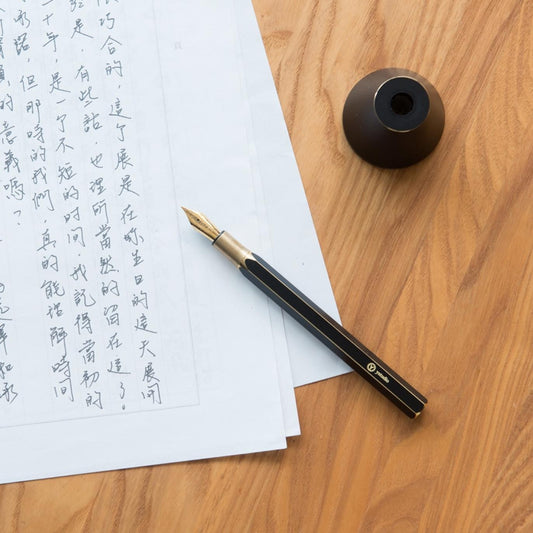 巧合的，這个展是在妳生日的這天展開
是，有些話，也理所當然的留在這了。
十年，是一个不短的時間，我記得當初的
諾，但那時的我們，真的能解時間
的意義嗎？
和永
ystudio